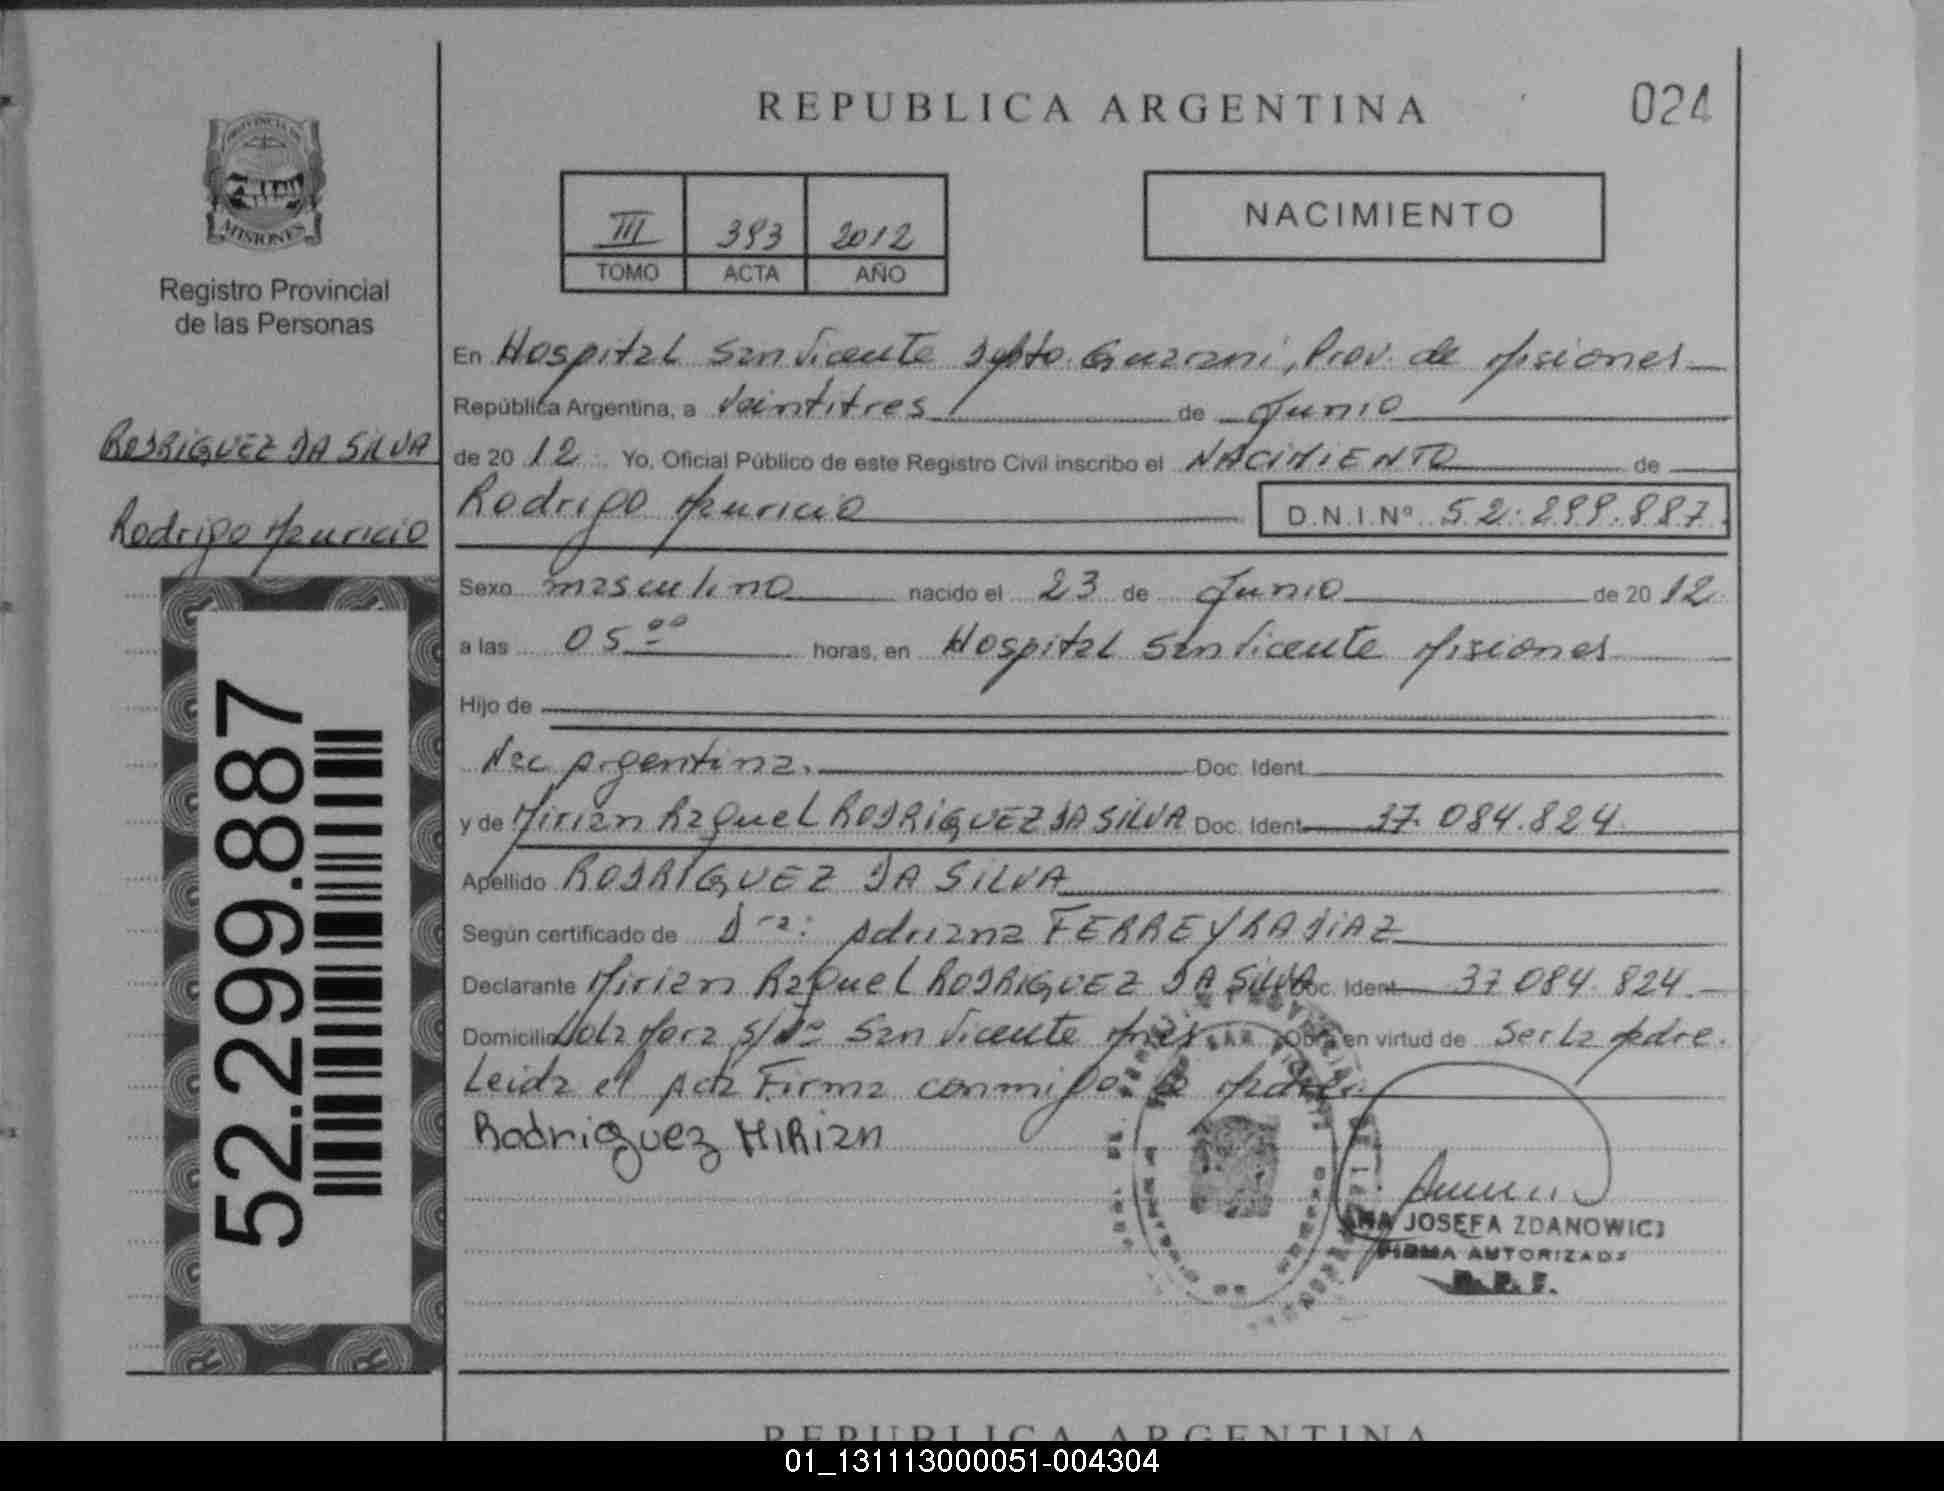 REPUBLICA ARGENTINA
024
PROVINCIA DE
MISIONES
Registro Provincial
de las Personas
III 393 2012
TOMO ACTA AÑO
NACIMIENTO
RODRIGUEZ DA SILVA
Rodrigo Mauricio
52.299.887
En Hospital San Vicente Dpto. Guarani, Prov. de Misiones
República Argentina, a Veintitres de Junio
de 2012 Yo, Oficial Público de este Registro Civil inscribo el NACIMIENTO de
Rodrigo Mauricio D.N.I.Nº 52.299.887
Sexo masculino nacido el 23 de Junio de 2012
a las 05 00 horas, en Hospital San Vicente Misiones
Hijo de
Nac Argentina. Doc. Ident.
y de Mirian Raquel RODRIGUEZ DA SILVA Doc. Ident. 37.084.824
Apellido RODRIGUEZ DA SILVA
Según certificado de Dra: Adriana FERREYRA DIAZ
Declarante Mirian Raquel RODRIGUEZ DA SILVA Doc. Ident. 37 084.824.
Domicilio Lola Mora S/Nº San Vicente Mnes Obra en virtud de Ser la Madre.
Leida el Acta Firma conmigo la Madre.
Rodriguez MIRian
ANA JOSEFA ZDANOWICZ
FIRMA AUTORIZADA
REPUBLICA ARGENTINA
01_131113000051-004304